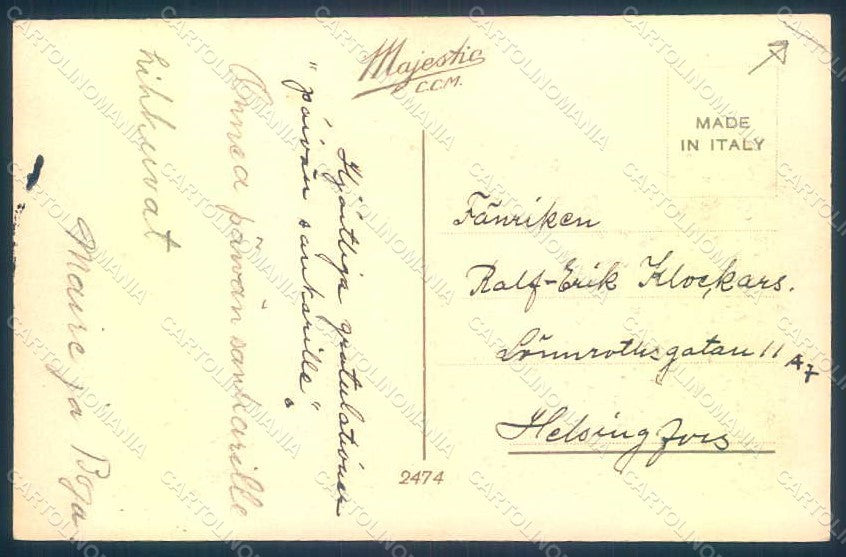 Majestic
C.C.M.
MADE
IN ITALY
Hjärtliga gratulationer
"päivän sankarille".
Onnea päivän sankarille
Maire ja
Fänriken
Ralf-Erik Klockars.
Lönnrotsgatan 11 A 7
Helsingfors
2474
CARTOLINOMANIA